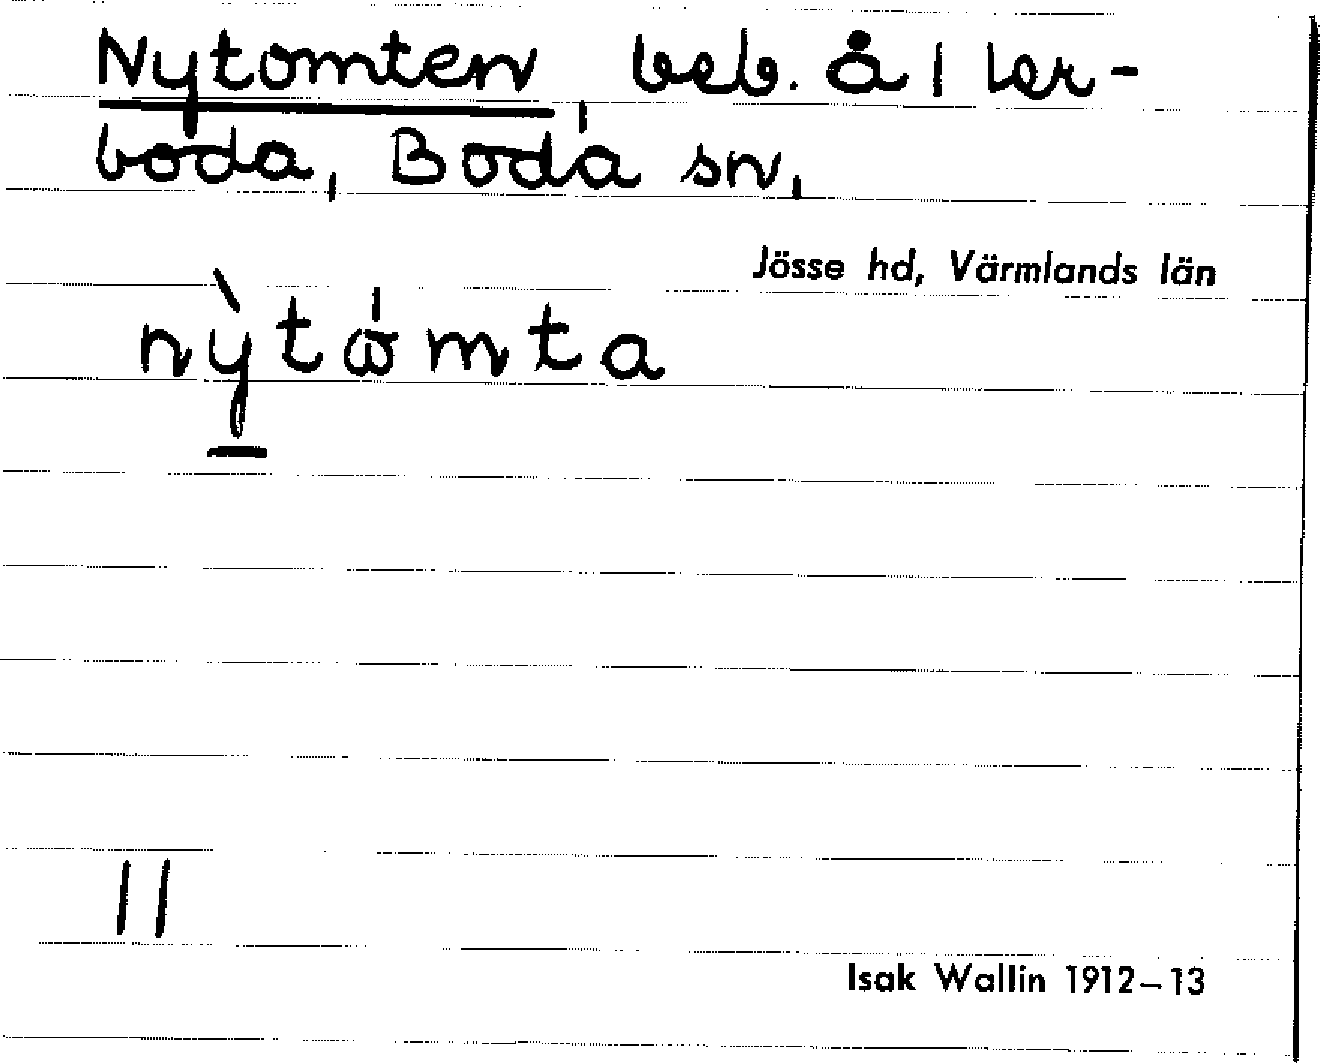 Nytomten, beb. å 1 Ler-
boda, Boda sn,
Jösse hd, Värmlands län
nỳtǿmta
11
Isak Wallin 1912–13